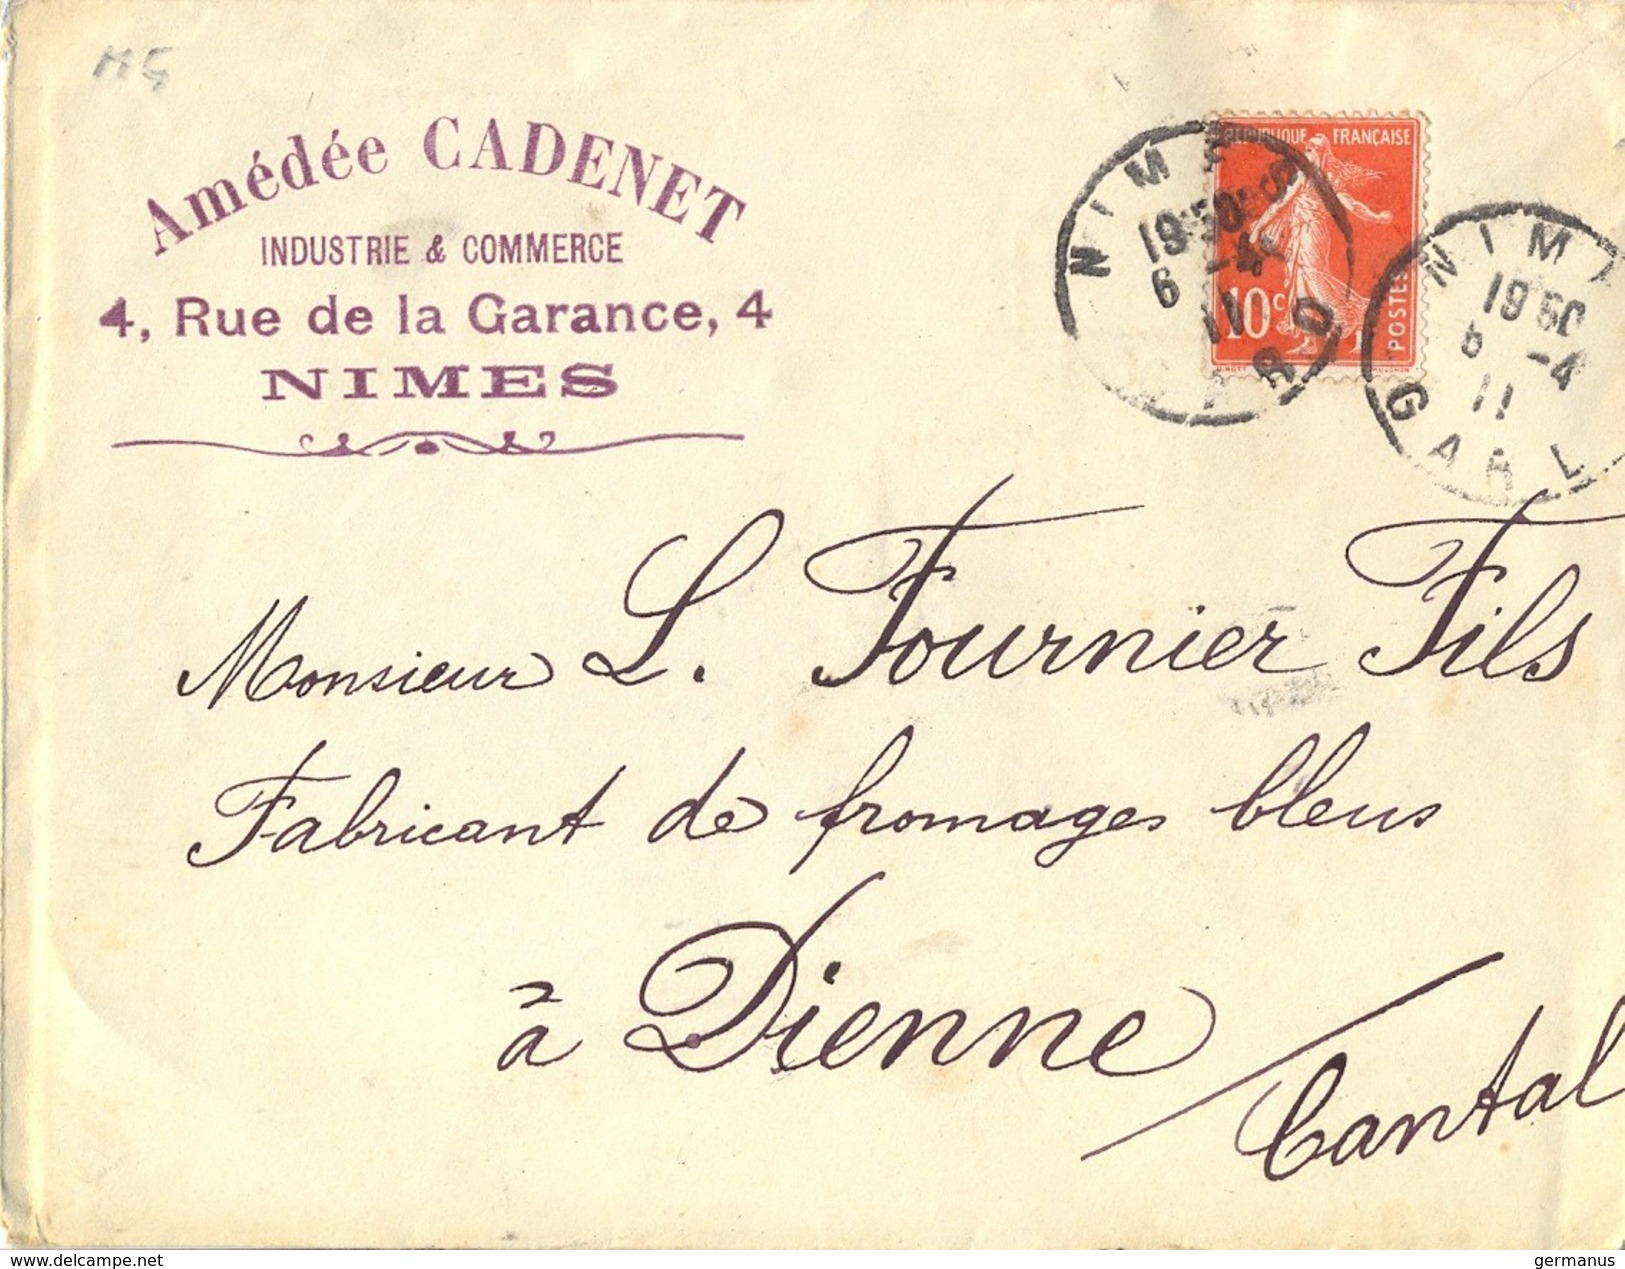 Amédée CADENET
INDUSTRIE & COMMERCE
4, Rue de la Garance, 4
NIMES
REPUBLIQUE FRANÇAISE
10c
POSTES
NIMES
19 50
6 -4
11
GARD
NIM
19 50
6 -4
11
GARD
Monsieur L. Fournier Fils
Fabricant de fromages bleus
à Dienne
Cantal
germanus